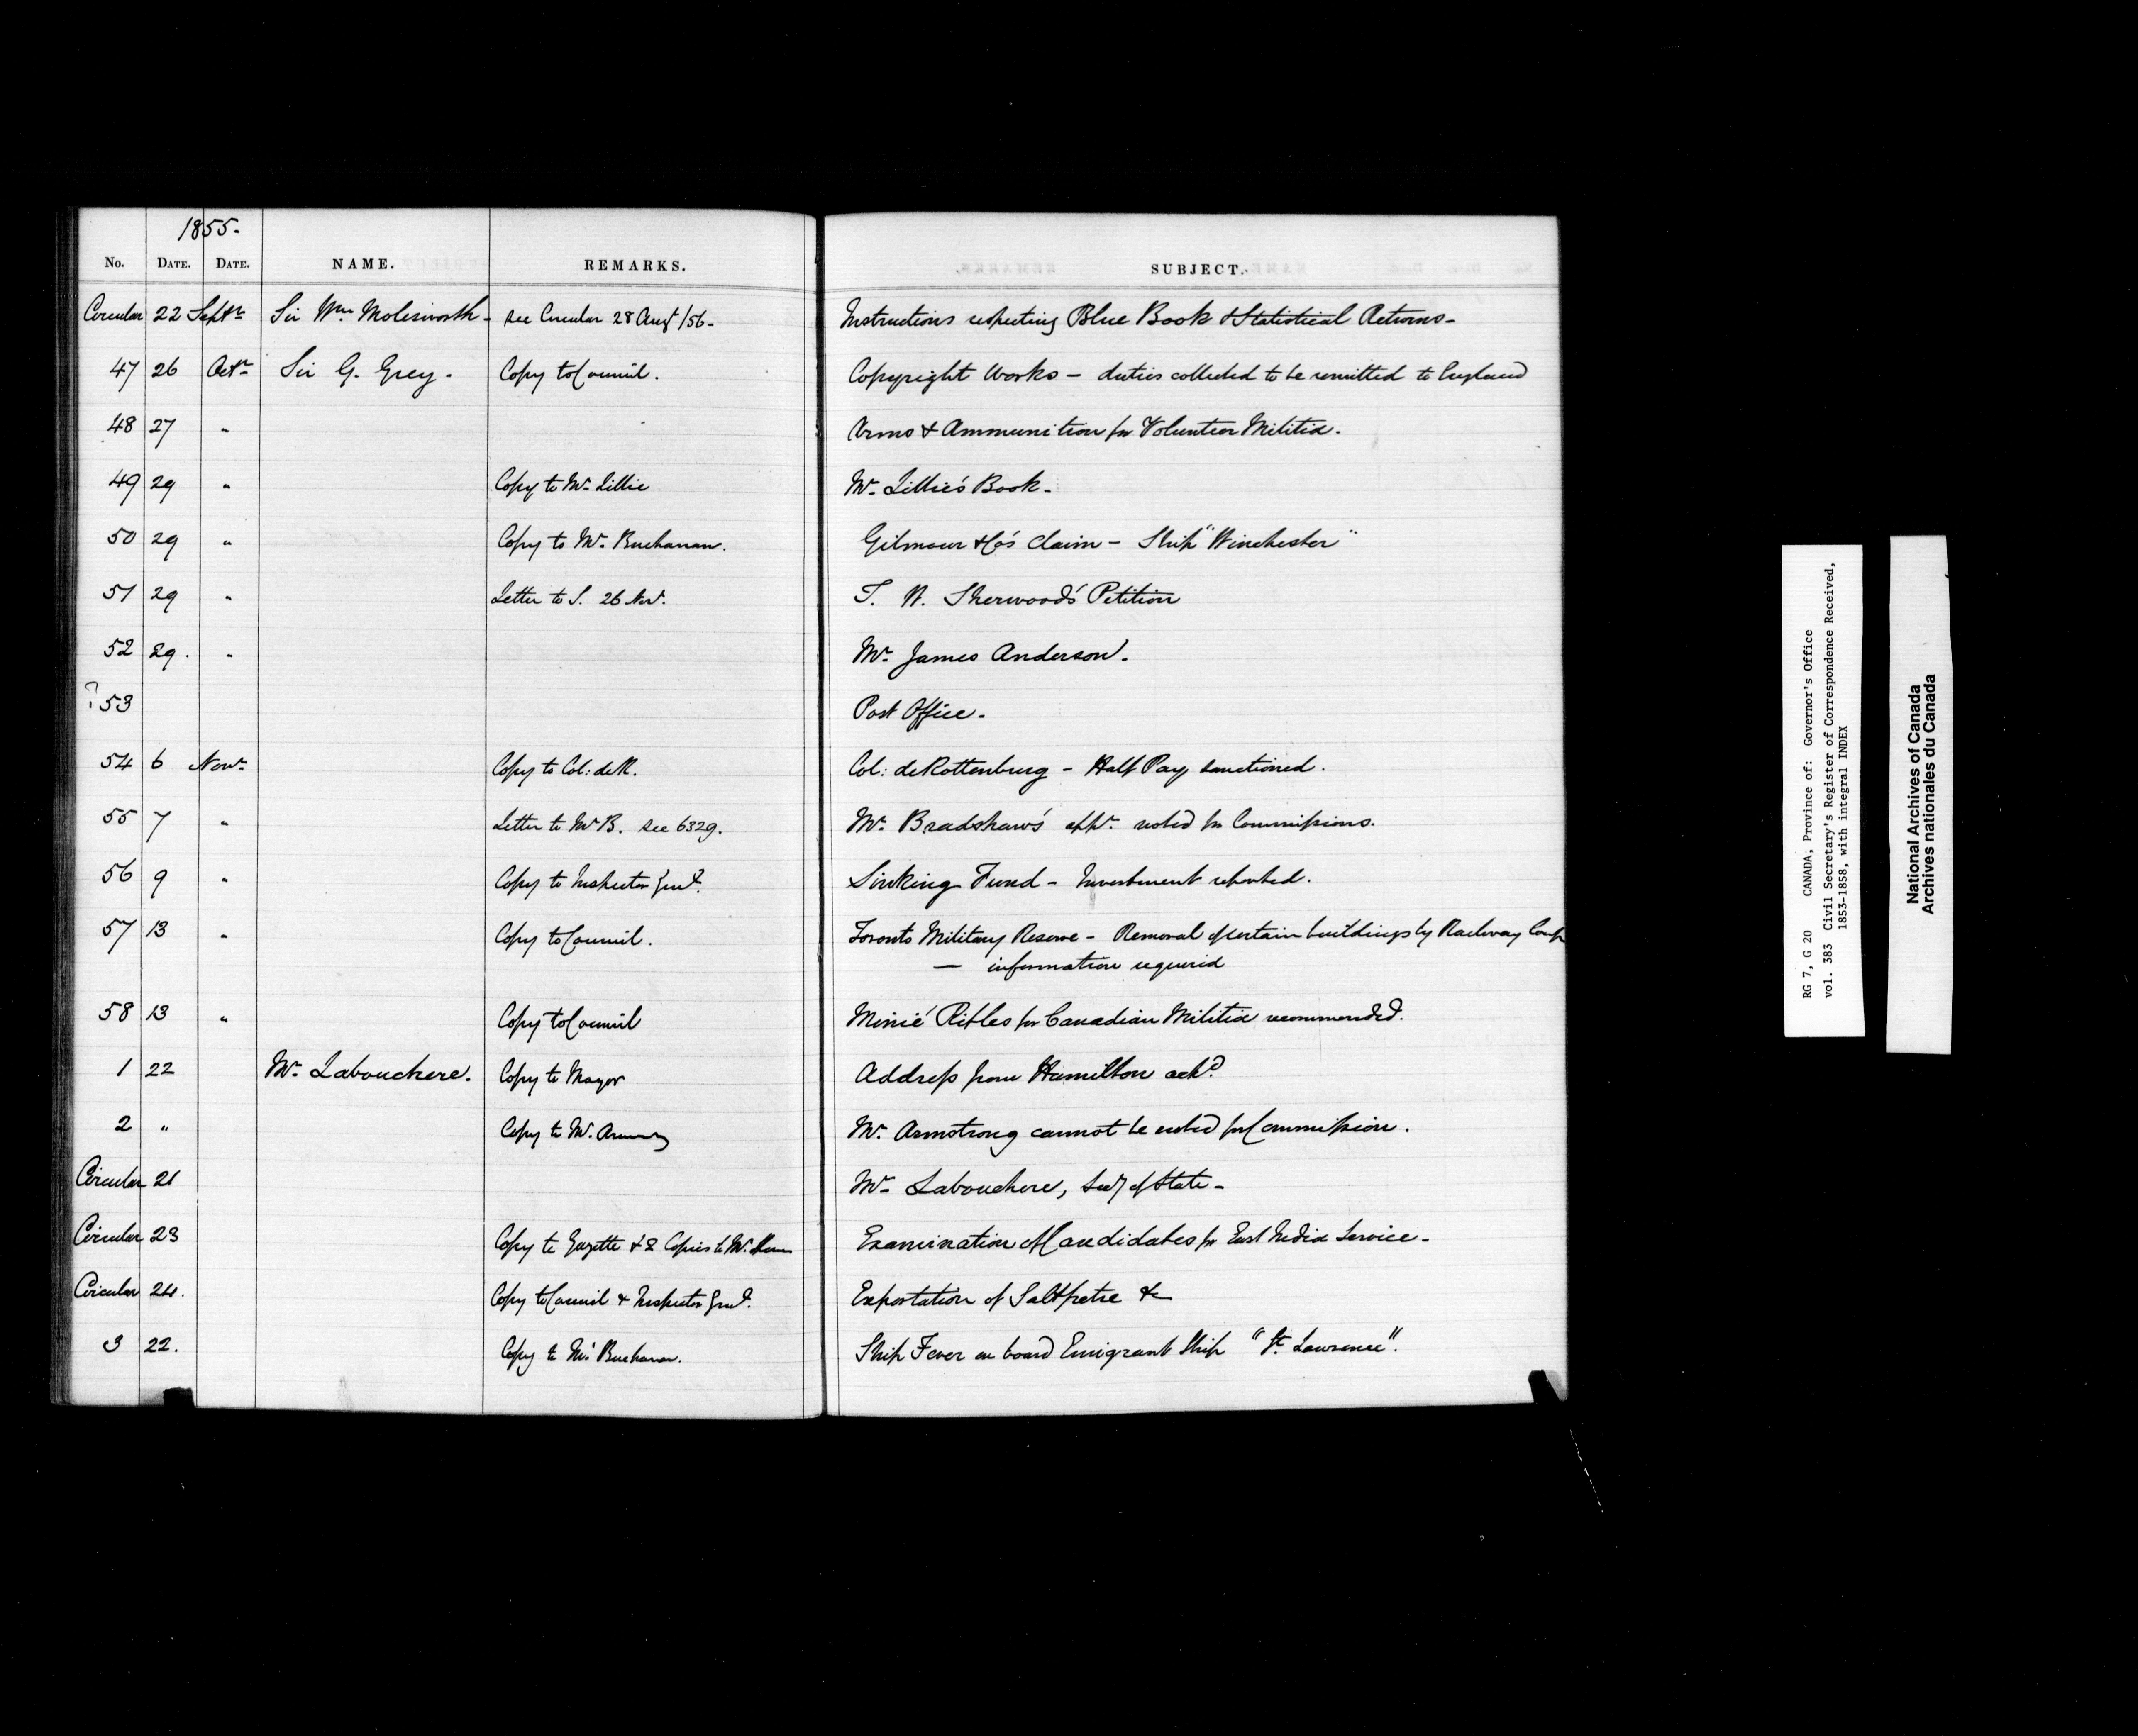 1855.
No. DATE. DATE. NAME. REMARKS. SUBJECT.
Circular 22 Septr Sir Wm Molesworth - see Circular 28 Augt /56 - Instructions respecting Blue Book & Statistical Returns -
47 26 Octr Sir G. Grey. Copy to Council. Copyright Works - duties collected to be remitted to England
48 27 " Arms & Ammunition for Volunteer Militia.
49 29 " Copy to Mr Lillie Mr Lillie's Book -
50 29 " Copy to Mr Buchanan. Gilmour & Co's Claim - Ship "Winchester"
51 29 " Letter to S. 26 Nov. Sherwood's Petition
52 29. " Mr James Anderson.
? 53 Post Office.
54 6 Novr Copy to Col: de R. Col: de Rottenburg - Half Pay sanctioned.
55 7 " Letter to Mr B. see 6329. Mr Bradshaw's appn. noted for Commissions.
56 9 " Copy to Inspector Genl. Sinking Fund - Investment reported.
57 13 " Copy to Council. Toronto Military Reserve - Removal of certain buildings by Railway Comp
— information required
58 13 " Copy to Council Minié Rifles for Canadian Militia recommended.
1 22 Mr Labouchere. Copy to Mayor Address from Hamilton ackd.
2 " Copy to Mr. Mr. Armstrong cannot be noted for Commission.
Circular 21 Mr Labouchere, Secy of State -
Circular 23 Copy to Gazette & 2 Copies to Mr. Examination of Candidates for East India Service.
Circular 24. Copy to Council & Inspector Genl. Exportation of Saltpetre &c
3 22. Copy to Mr Buchanan. Ship Fever on board Emigrant Ship "St. Lawrence".
RG 7, G 20 CANADA, Province of: Governor's Office
vol. 383 Civil Secretary's Register of Correspondence Received,
1853-1858, with integral INDEX
National Archives of Canada
Archives nationales du Canada